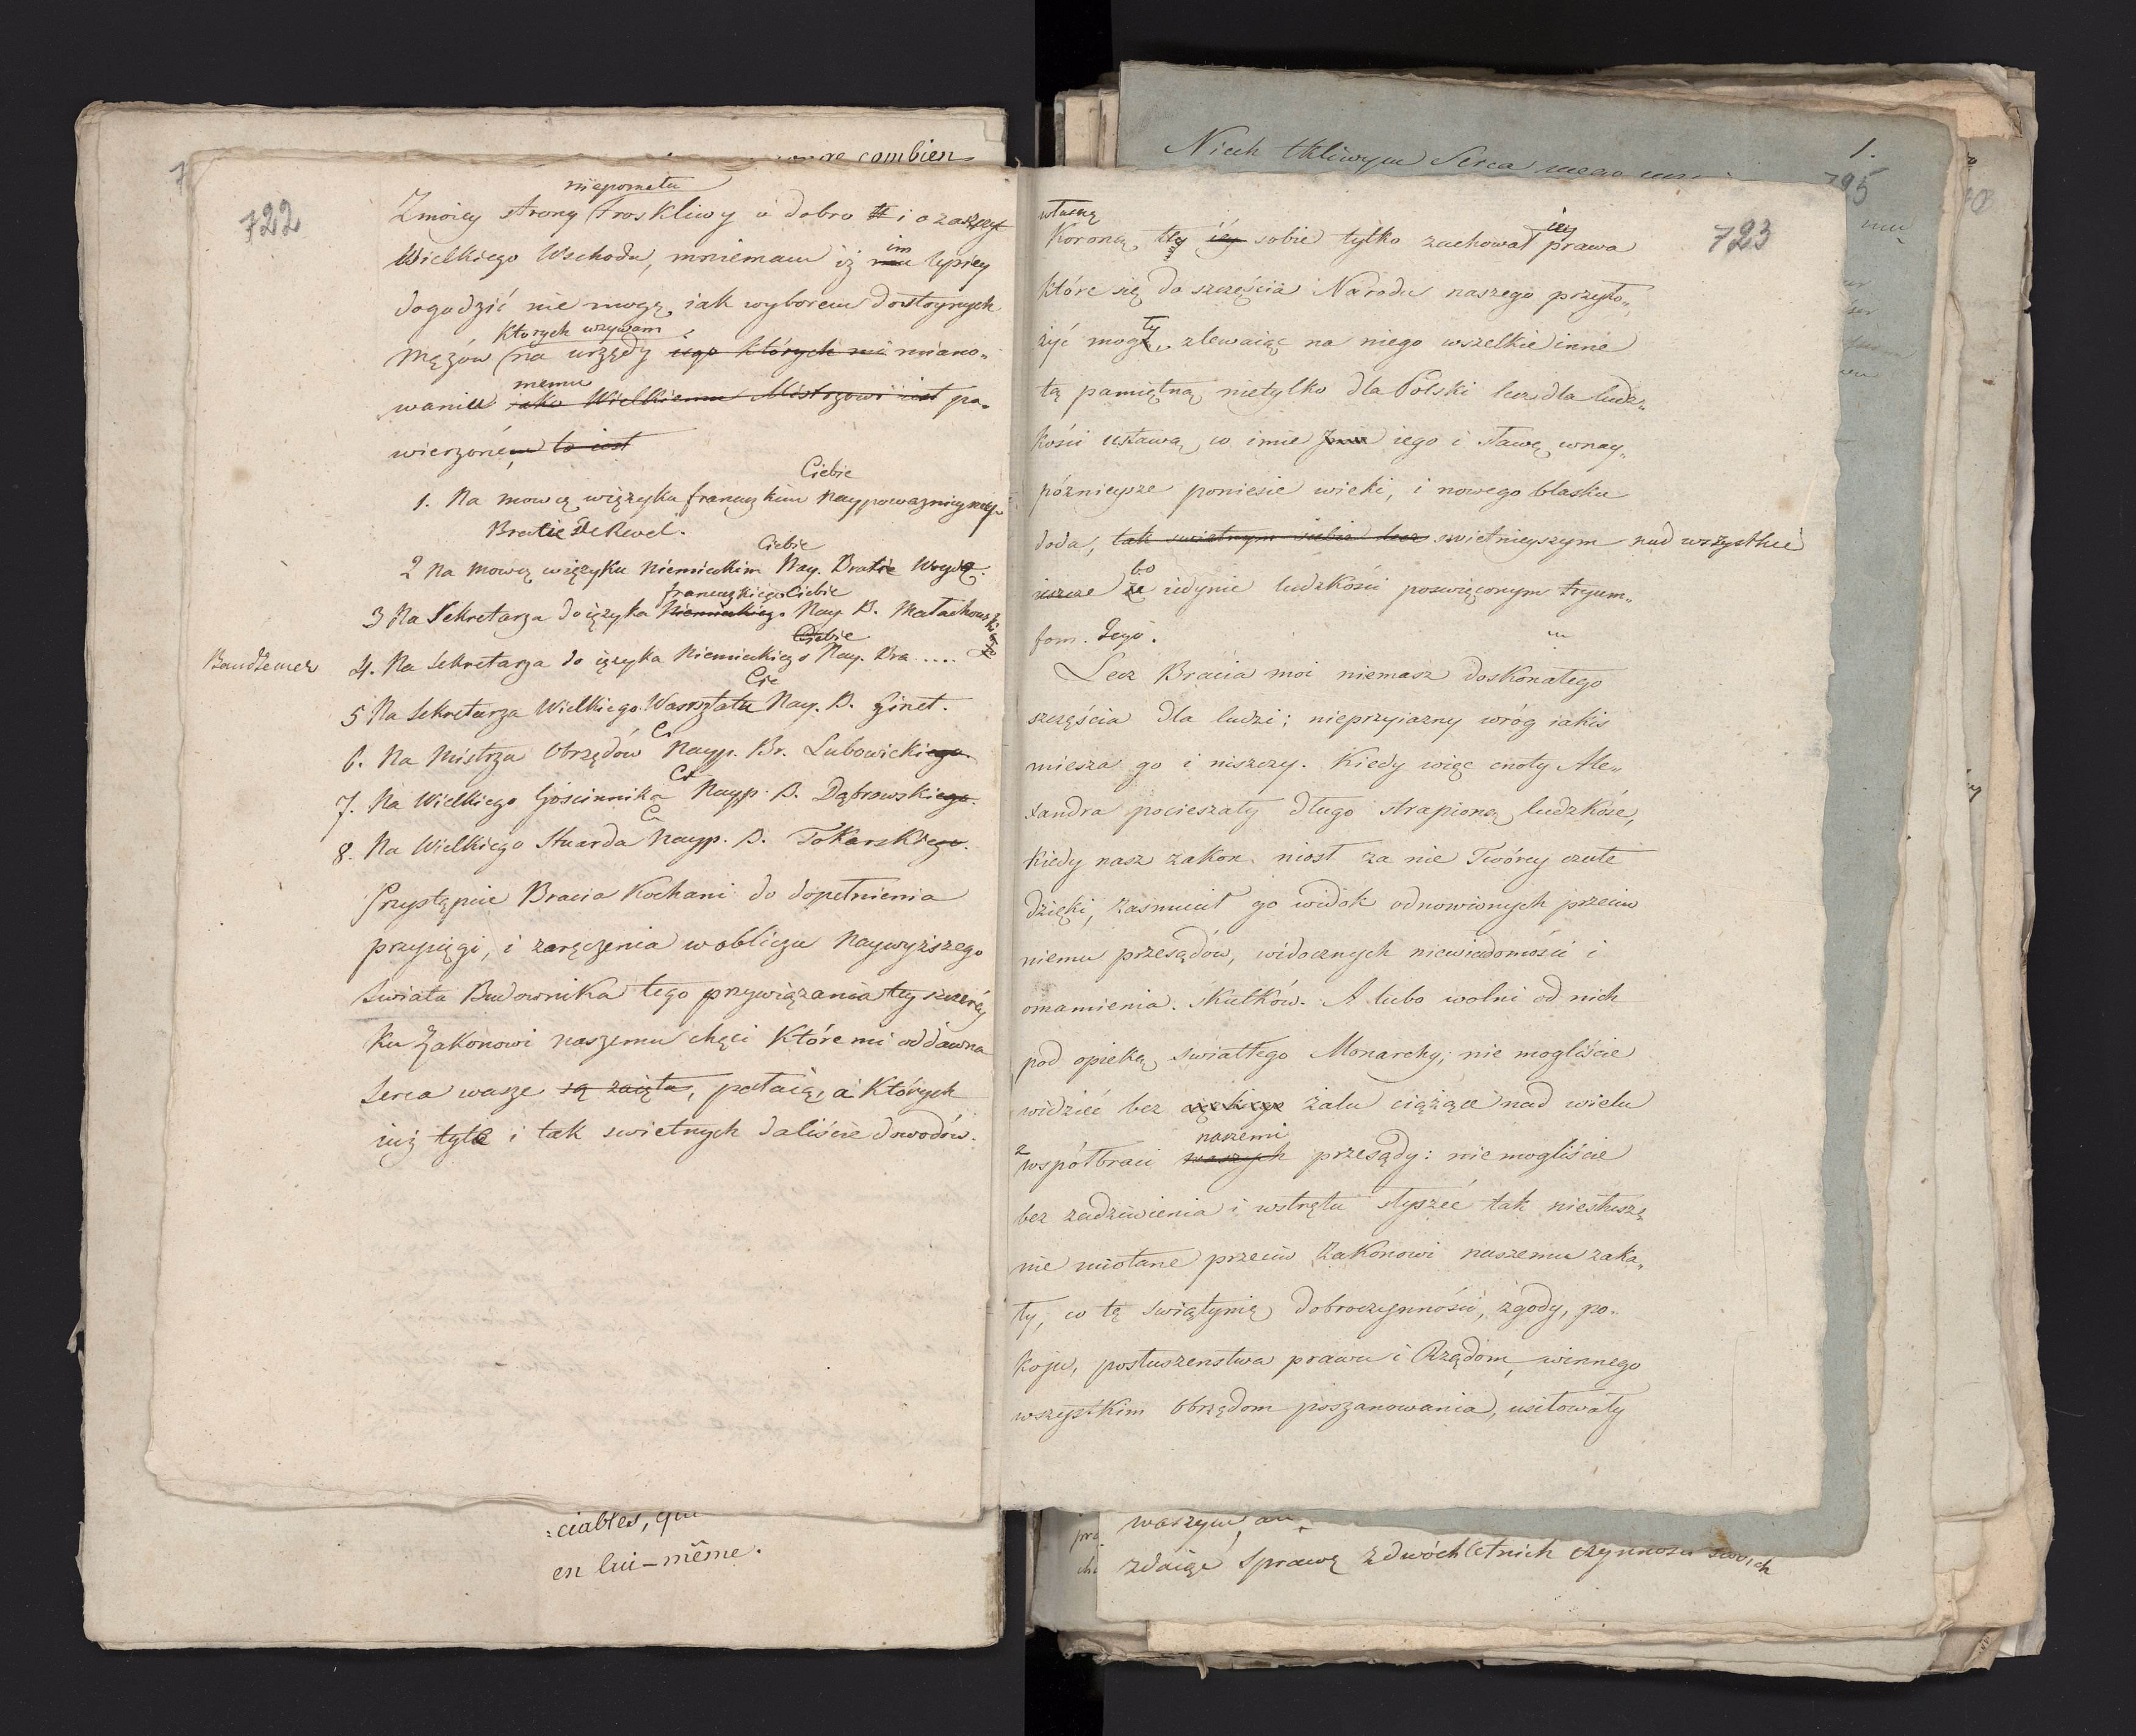 combien
722
niepomału
Zmoiey strony troskliwy o dobro i o zaszczyt
Wielkiego Wschodu, mniemam iż im lepiey
dogodzić nie mogę, iak wyborem dostoynych
których wzywam
Mężów na urzędy iego których miano„
memu
waniu iako Wielkiemu Mistrzowi iest po„
wierzoném to iest
Ciebie
1. Na mowcę więzyku francuzkim Naypoważnieyszy
Bracie De Revel.
Ciebie
2 Na Mowcę więzyku Niemieckim Nay. Bracie Woydę.
francuzkiego Ciebie
3 Na Sekretarza do ięzyka Niemieckiego Nay. B. Małachowskiego
Ciebie
4. Na Sekretarza do ięzyka Niemieckiego Nay. Bra ....
Cie
5 Na Sekretarza Wielkiego Warsztatu Nay. B. Ginet.
C.
6. Na Mistrza Obrzędów Nayp. Br. Lubowickiego.
C.
7. Na Wielkiego Gościnnika Nayp. B. Dąbrowskiego.
8. Na Wielkiego Stuarda Nayp. B. Tokarskiego.
Przystąpcie Bracia Kochani do dopełnienia
przysięgi, i zaręczenia w obliczu Naywyższego
Swiata Budownika tego przywiązania tey szczeréy
Ku Zakonowi naszemu chęci Któremi oddawna
Serca wasze są zaięte, pałaią, a Których
iuż tyle i tak swietnych daliście dowodów.
ciables, qu
en lui-même.
Niech tkliwym Serca mego
1.
795
723
własną
Koroną, iey sobie tylko zachował iey prawa
które się do szczęścia Narodu naszego przyło„
żyć mogły, zlewaiąc na niego wszelkie inne
tą pamiętną nietylko dla Polski lecz dla ludz„
kości ustawą, co imie iego i sławę wnay„
późnieysze poniesie wieki, i nowego blasku
doda, tak swietnym sobie lecz swietnieyszym nad wszystkie
bo
ieszcze że iedynie ludzkości poswięconym tryum„
fom Jego.
Lecz Bracia moi niemasz doskonałego
szczęścia dla ludzi; nieprzyiazny wróg iakis
miesza go i niszczy. Kiedy więc cnoty Ale„
xandra pocieszały długo strapioną ludzkość,
kiedy nasz zakon niosł za nie Twórcy czułe
dzięki, zasmucił go widok odnowionych przeciw
niemu przesądów, widocznych niewiadomości i
omamienia skutków. A lubo wolni od nich
pod opieką swiatłego Monarchy, nie mogliście
widzieć bez żalu ciążące nad wielu
naszemi
z współbraci waszych przesądy: nie mogliście
bez zadziwienia i wstrętu słyszeć tak niesłusz„
nie miotane przeciw Zakonowi naszemu zaka„
ły, co tę swiątynią dobroczynności, zgody, po„
koju, posłuszenstwa prawu i Rządom, winnego
wszystkim Obrzędom poszanowania, usiłowały
waszym
zdaiąc Sprawę z dwóchletnich czynności swoich